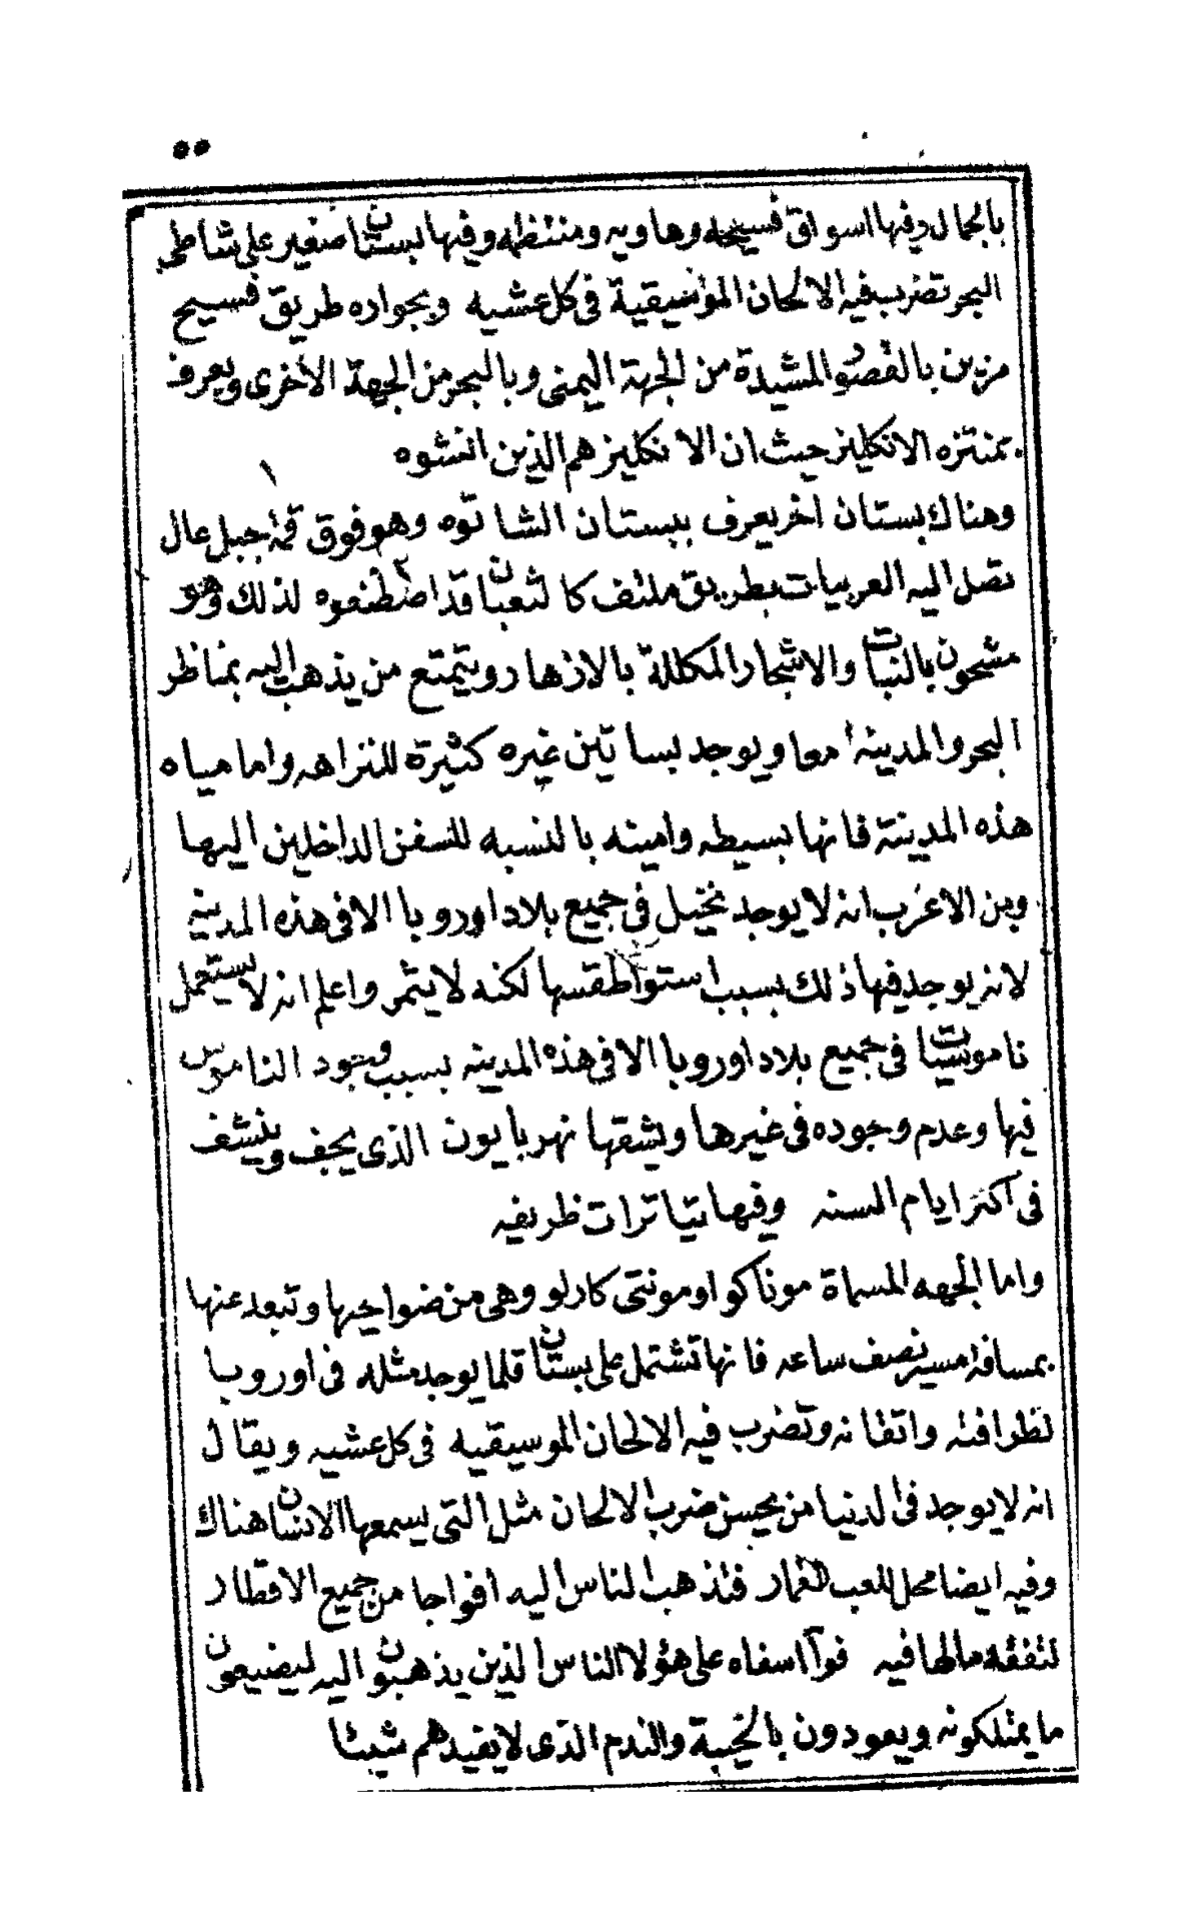 ٥٥
بالجمال وفيها اسواق فسيحه وهاويه ومنتظمه وفيها بستان صغير على شاطى
البحر تضرب فيه الالحان الموسيقية فى كل عشيه وبجواره طريق فسيح
مزين بالقصور المشيدة من الجهة اليمنى وبالبحر من الجهة الاخرى ويعرف
بمنتزه الانكليز حيث ان الانكليز هم الذين انشوه
وهناك بستان اخر يعرف ببستان الشاتوه وهو فوق قمة جبل عال
تصل اليه العربيات بطريق ملتف كالثعبان قد اصطنعوه لذلك وهو
مشحون بالنبات والاشجار المكللة بالازهار ويتمتع من يذهب اليه بمناظر
البحر والمدينه معا ويوجد بساتين غيره كثيرة للنزاهه واما مياه
هذه المدينة فانها بسيطه وامينه بالنسبه للسفن الداخلين اليها
ومن الاغرب انه لا يوجد نخيل فى جميع بلاد اوروبا الا فى هذه المدينه
لانه يوجد فيها ذلك بسبب استواء طقسها لكنه لا يثمر واعلم انه لا يستعمل
ناموسيات فى جميع بلاد اوروبا الا فى هذه المدينه بسبب وجود الناموس
فيها وعدم وجوده فى غيرها ويشقها نهر بايون الذى يجف وينشف
فى اكثر ايام السنه وفيها تياترات ظريفه
واما الجهه المسماة موناكو او مونتى كارلو وهى من ضواحيها وتبعد عنها
بمسافة مسير نصف ساعه فانها تشتمل على بستان قلما يوجد مثله فى اوروبا
لظرافته واتقانه وتضرب فيه الالحان الموسيقيه فى كل عشيه ويقال
انه لا يوجد فى الدنيا من يحسن ضرب الالحان مثل التى يسمعها الانسان هناك
وفيه ايضا محل للعب القمار فتذهب الناس اليه افواجا من جميع الاقطار
لتفقد مالها فيه فوآ اسفاه على هؤلا الناس الذين يذهبون اليه ليضيعون
ما يمتلكونه ويعودون بالخيبة والندم الذى لا يفيدهم شيئا